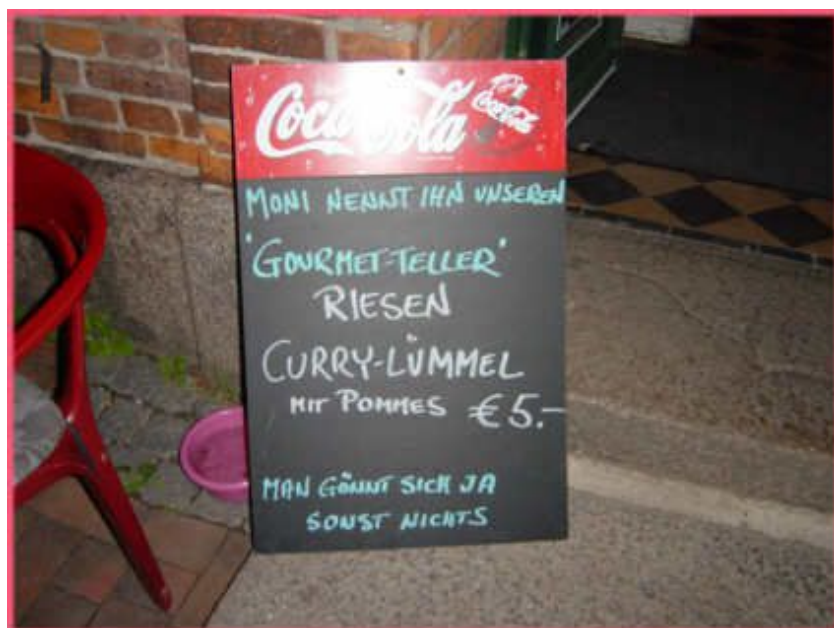 Coca-Cola
Coca-Cola
MONI NENNT IHN UNSEREN
"GOURMET-TELLER"
RIESEN
CURRY-LÜMMEL
MIT POMMES €5.-
MAN GÖNNT SICH JA
SONST NICHTS